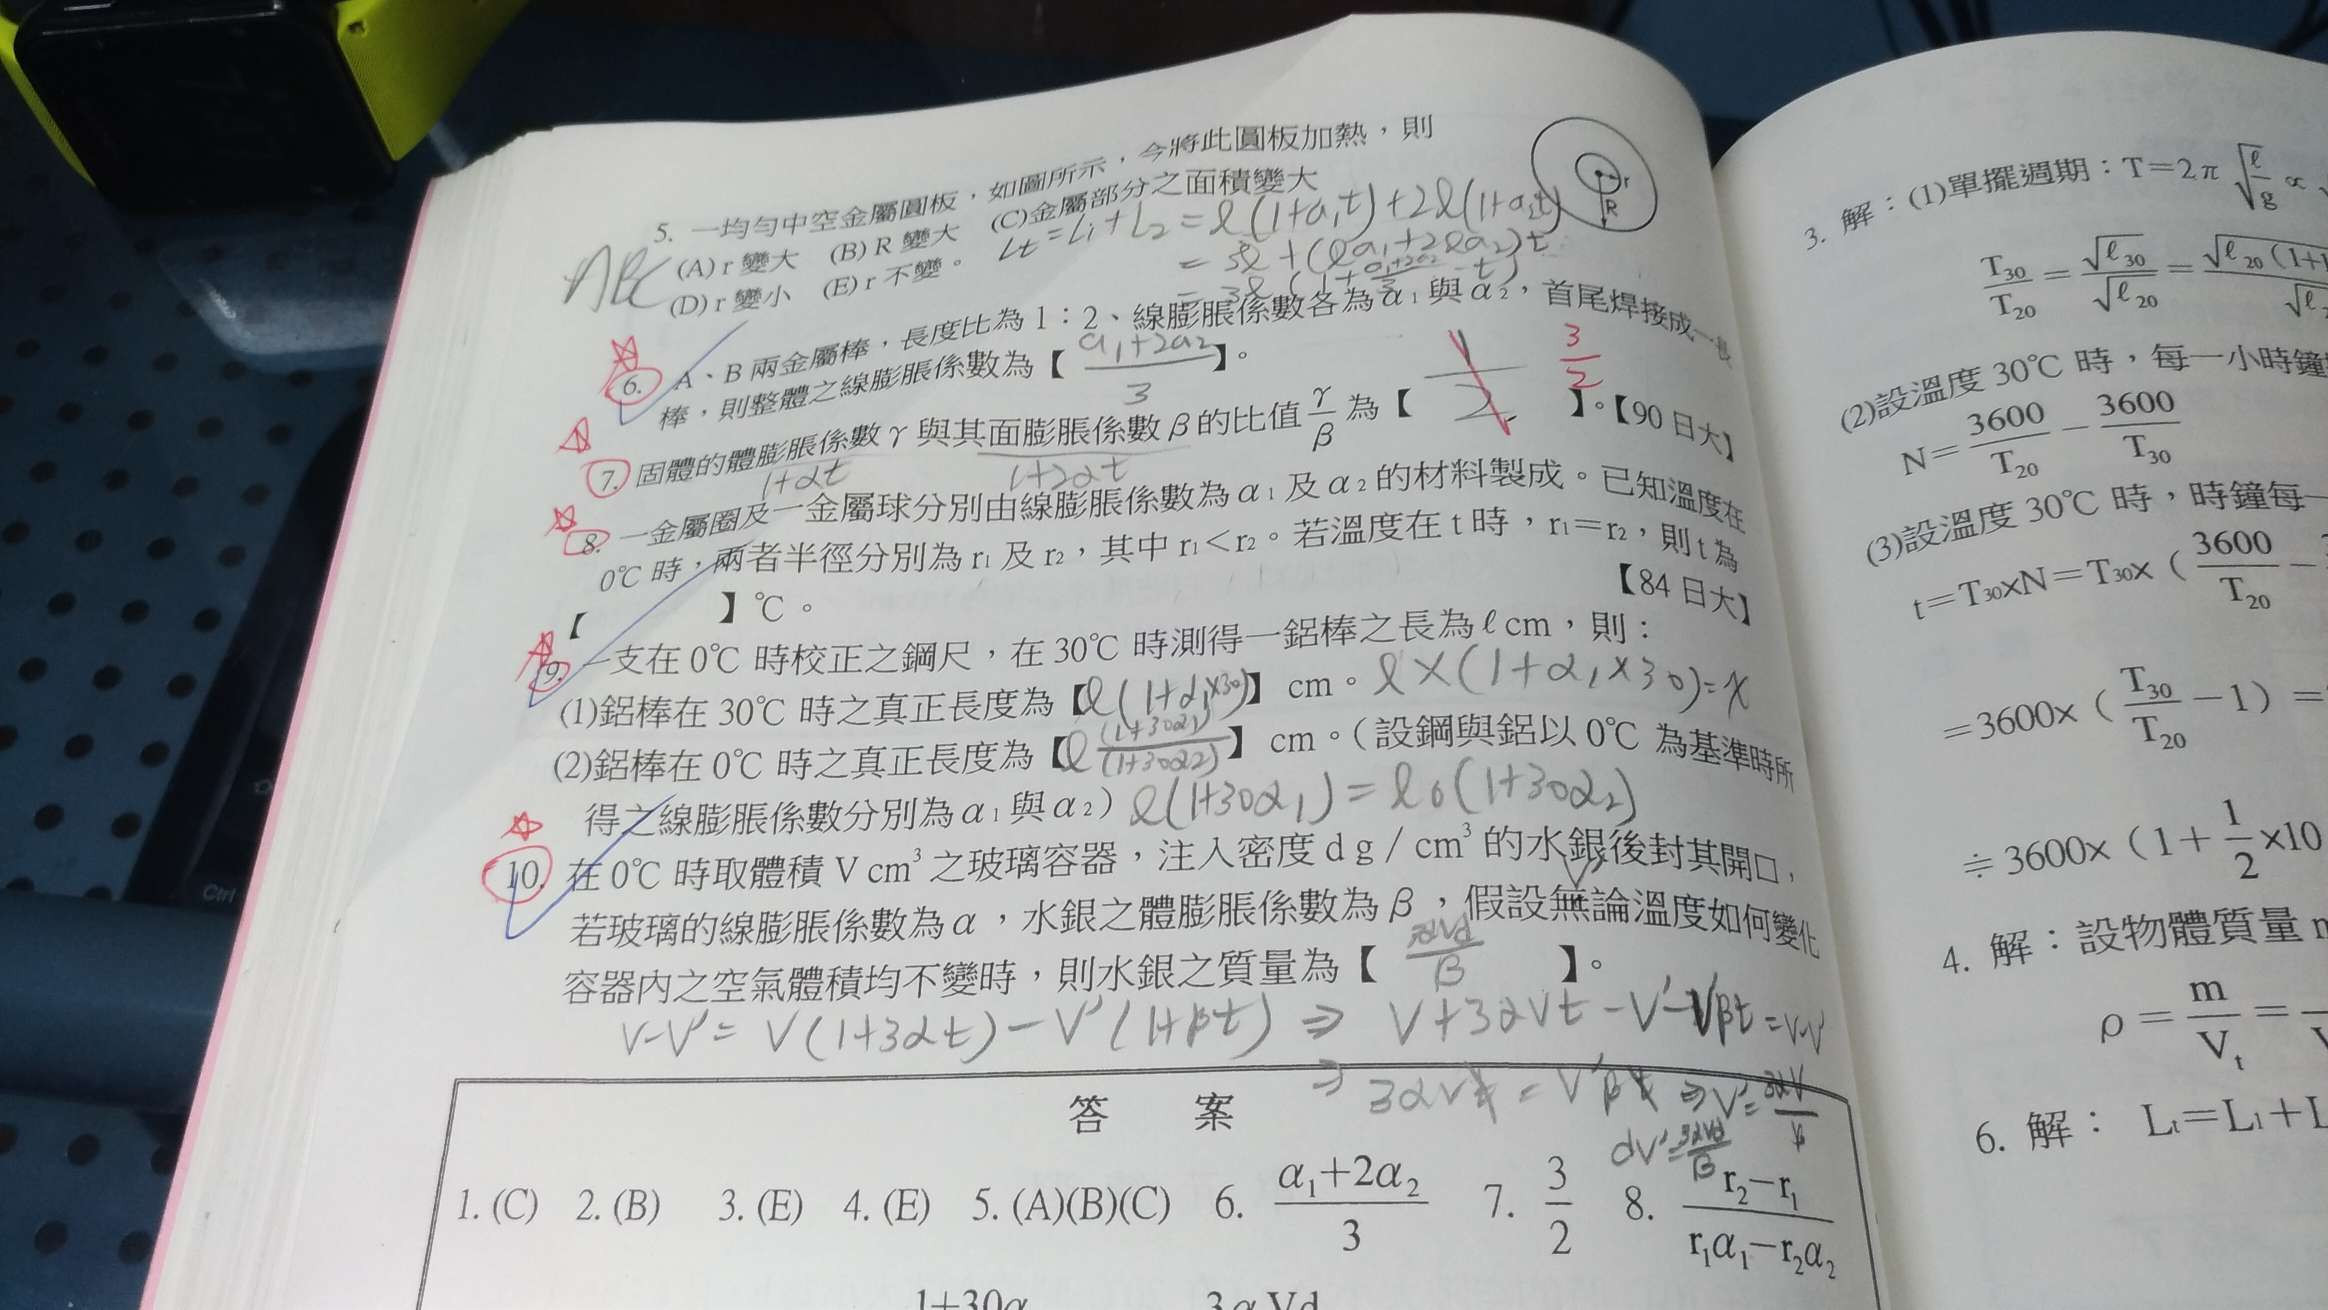 5. 一均勻中空金屬圓板，如圖所示，今將此圓板加熱，則
(A) r 變大 (B) R 變大 (C)金屬部分之面積變大
(D) r 變小 (E) r 不變。
ABC
Lt = L1 + L2 = l(1+α1t)+2l(1+α2t)
= 3l + (lα1+2lα2)t
= 3l (1+ (α1+2α2)/3 t)
r
R
6. A、B 兩金屬棒，長度比為 1：2、線膨脹係數各為 α1 與 α2，首尾焊接成一長
棒，則整體之線膨脹係數為【 (α1+2α2)/3 】。
7. 固體的體膨脹係數 γ 與其面膨脹係數 β 的比值 γ/β 為【 1/2 3/2 】。【90 日大】
1+αt 1+2αt
8. 一金屬圈及一金屬球分別由線膨脹係數為 α1 及 α2 的材料製成。已知溫度在
0℃ 時，兩者半徑分別為 r1 及 r2，其中 r1＜r2。若溫度在 t 時，r1＝r2，則 t 為
【 】℃。 【84 日大】
9. 一支在 0℃ 時校正之鋼尺，在 30℃ 時測得一鋁棒之長為 ℓ cm，則：
(1)鋁棒在 30℃ 時之真正長度為【l(1+α1×30)】cm。 l×(1+α1×30)=x
(2)鋁棒在 0℃ 時之真正長度為【l (1+30α1)/(1+30α2)】cm。（設鋼與鋁以 0℃ 為基準時所
得之線膨脹係數分別為 α1 與 α2） l(1+30α1) = l0(1+30α2)
10. 在 0℃ 時取體積 V cm³ 之玻璃容器，注入密度 d g／cm³ 的水銀後封其開口，
V'
若玻璃的線膨脹係數為 α，水銀之體膨脹係數為 β，假設無論溫度如何變化
容器內之空氣體積均不變時，則水銀之質量為【 3αVd/β 】。
V-V' = V(1+3αt) - V'(1+βt) ⇒ V+3αVt-V'-V'βt = V-V'
⇒ 3αVt = V'βt ⇒ V' = 3αV/β
dV' = 3αVd/β
答 案
1. (C) 2. (B) 3. (E) 4. (E) 5. (A)(B)(C) 6. (α1+2α2)/3 7. 3/2 8. (r2−r1)/(r1α1−r2α2)
1+30α 3αVd
3. 解：(1)單擺週期：T＝2π√(ℓ/g) ∝
T30/T20 = √ℓ30/√ℓ20 =
(2)設溫度 30℃ 時，每一小時鐘
N＝3600/T20 − 3600/T30
(3)設溫度 30℃ 時，時鐘每一
t＝T30xN＝T30x（3600/T20 −
＝3600x（T30/T20 −1）＝
÷3600x（1＋1/2 x10
4. 解：設物體質量 m
ρ＝m/Vt＝
6. 解： Lt＝L1＋L
Ctrl